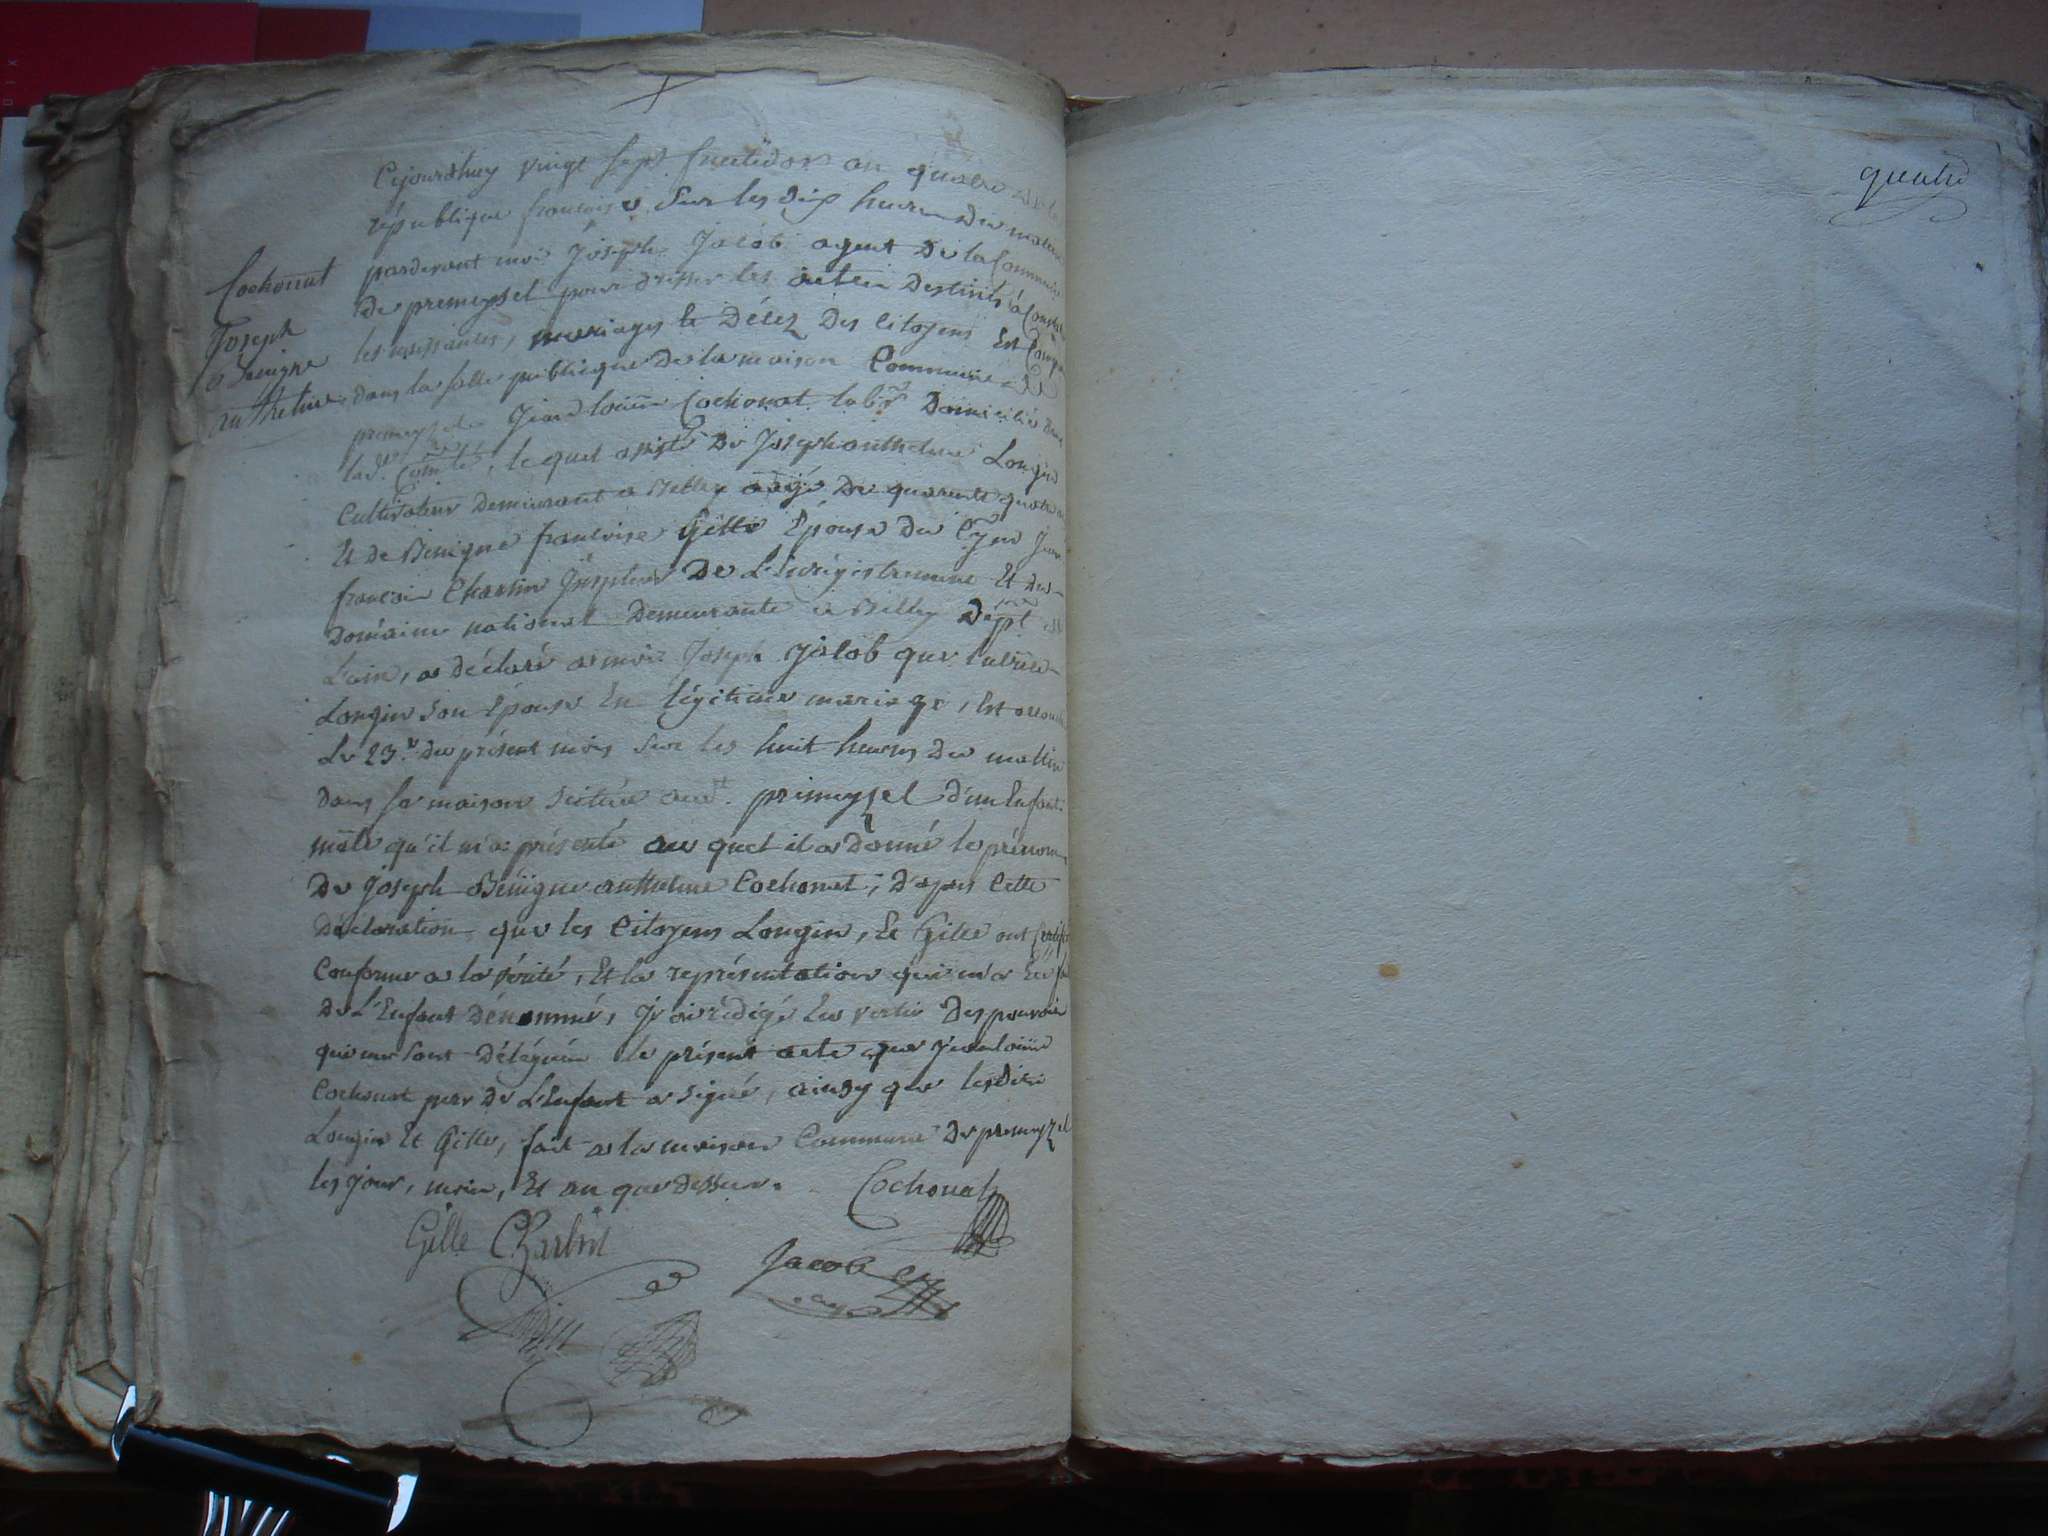 Cejourdhuy vingt sept fructidor an quatre de la
république francoise sur les dix heures du matin
pardevant moi Joseph Jacob agent de la Commune
de premeyzel pour dresser les actes destinés à Constater
les naissances, mariages et Décez des citoyens Est Comparu
dans la salle publique de la maison Commune de
premeyzel Jean Cochonat lab.r Domicilié dans
lad.e Com.té, lequel assisté de Joseph anthelme Longin
Cultivateur demeurant a Belley aagé de quarente quatre
Et de Benigne francoise Gille Épouse du C.yen Jean
francois Charbin De L'Enregistrement Et du
Domaine national demeurante a Belley Dépt de
L'ain, a déclaré a moi Joseph Jacob que
Longin son Épouse En légitime mariage, Est accouchée
Le 23.e du présent mois sur les huit heures du mattin
dans sa maison scituée aud.t premeyzel d'un Enfant
mâle qu'il m'a présenté au quel il a donné le prénom
De Joseph Benigne anthelme Cochonat; d'après Cette
déclaration que les Citoyens Longin, Et Gille ont Certifié
Conforme a la vérité, Et la représentation qui m'a Été
de L'Enfant dénommé, J'ai rédigé En vertu des pouvoirs
qui me sont délégués le présent acte que
Cochonat pere de L'Enfant a signé, ainsy que lesdits
Longin Et Gille, fait a la maison Commune de premeyzel
les jour, mois, Et an que dessus.
Cochonat
Gille Charbin
Jacob
Cochonat
Joseph
Benigne
anthelme
quatre